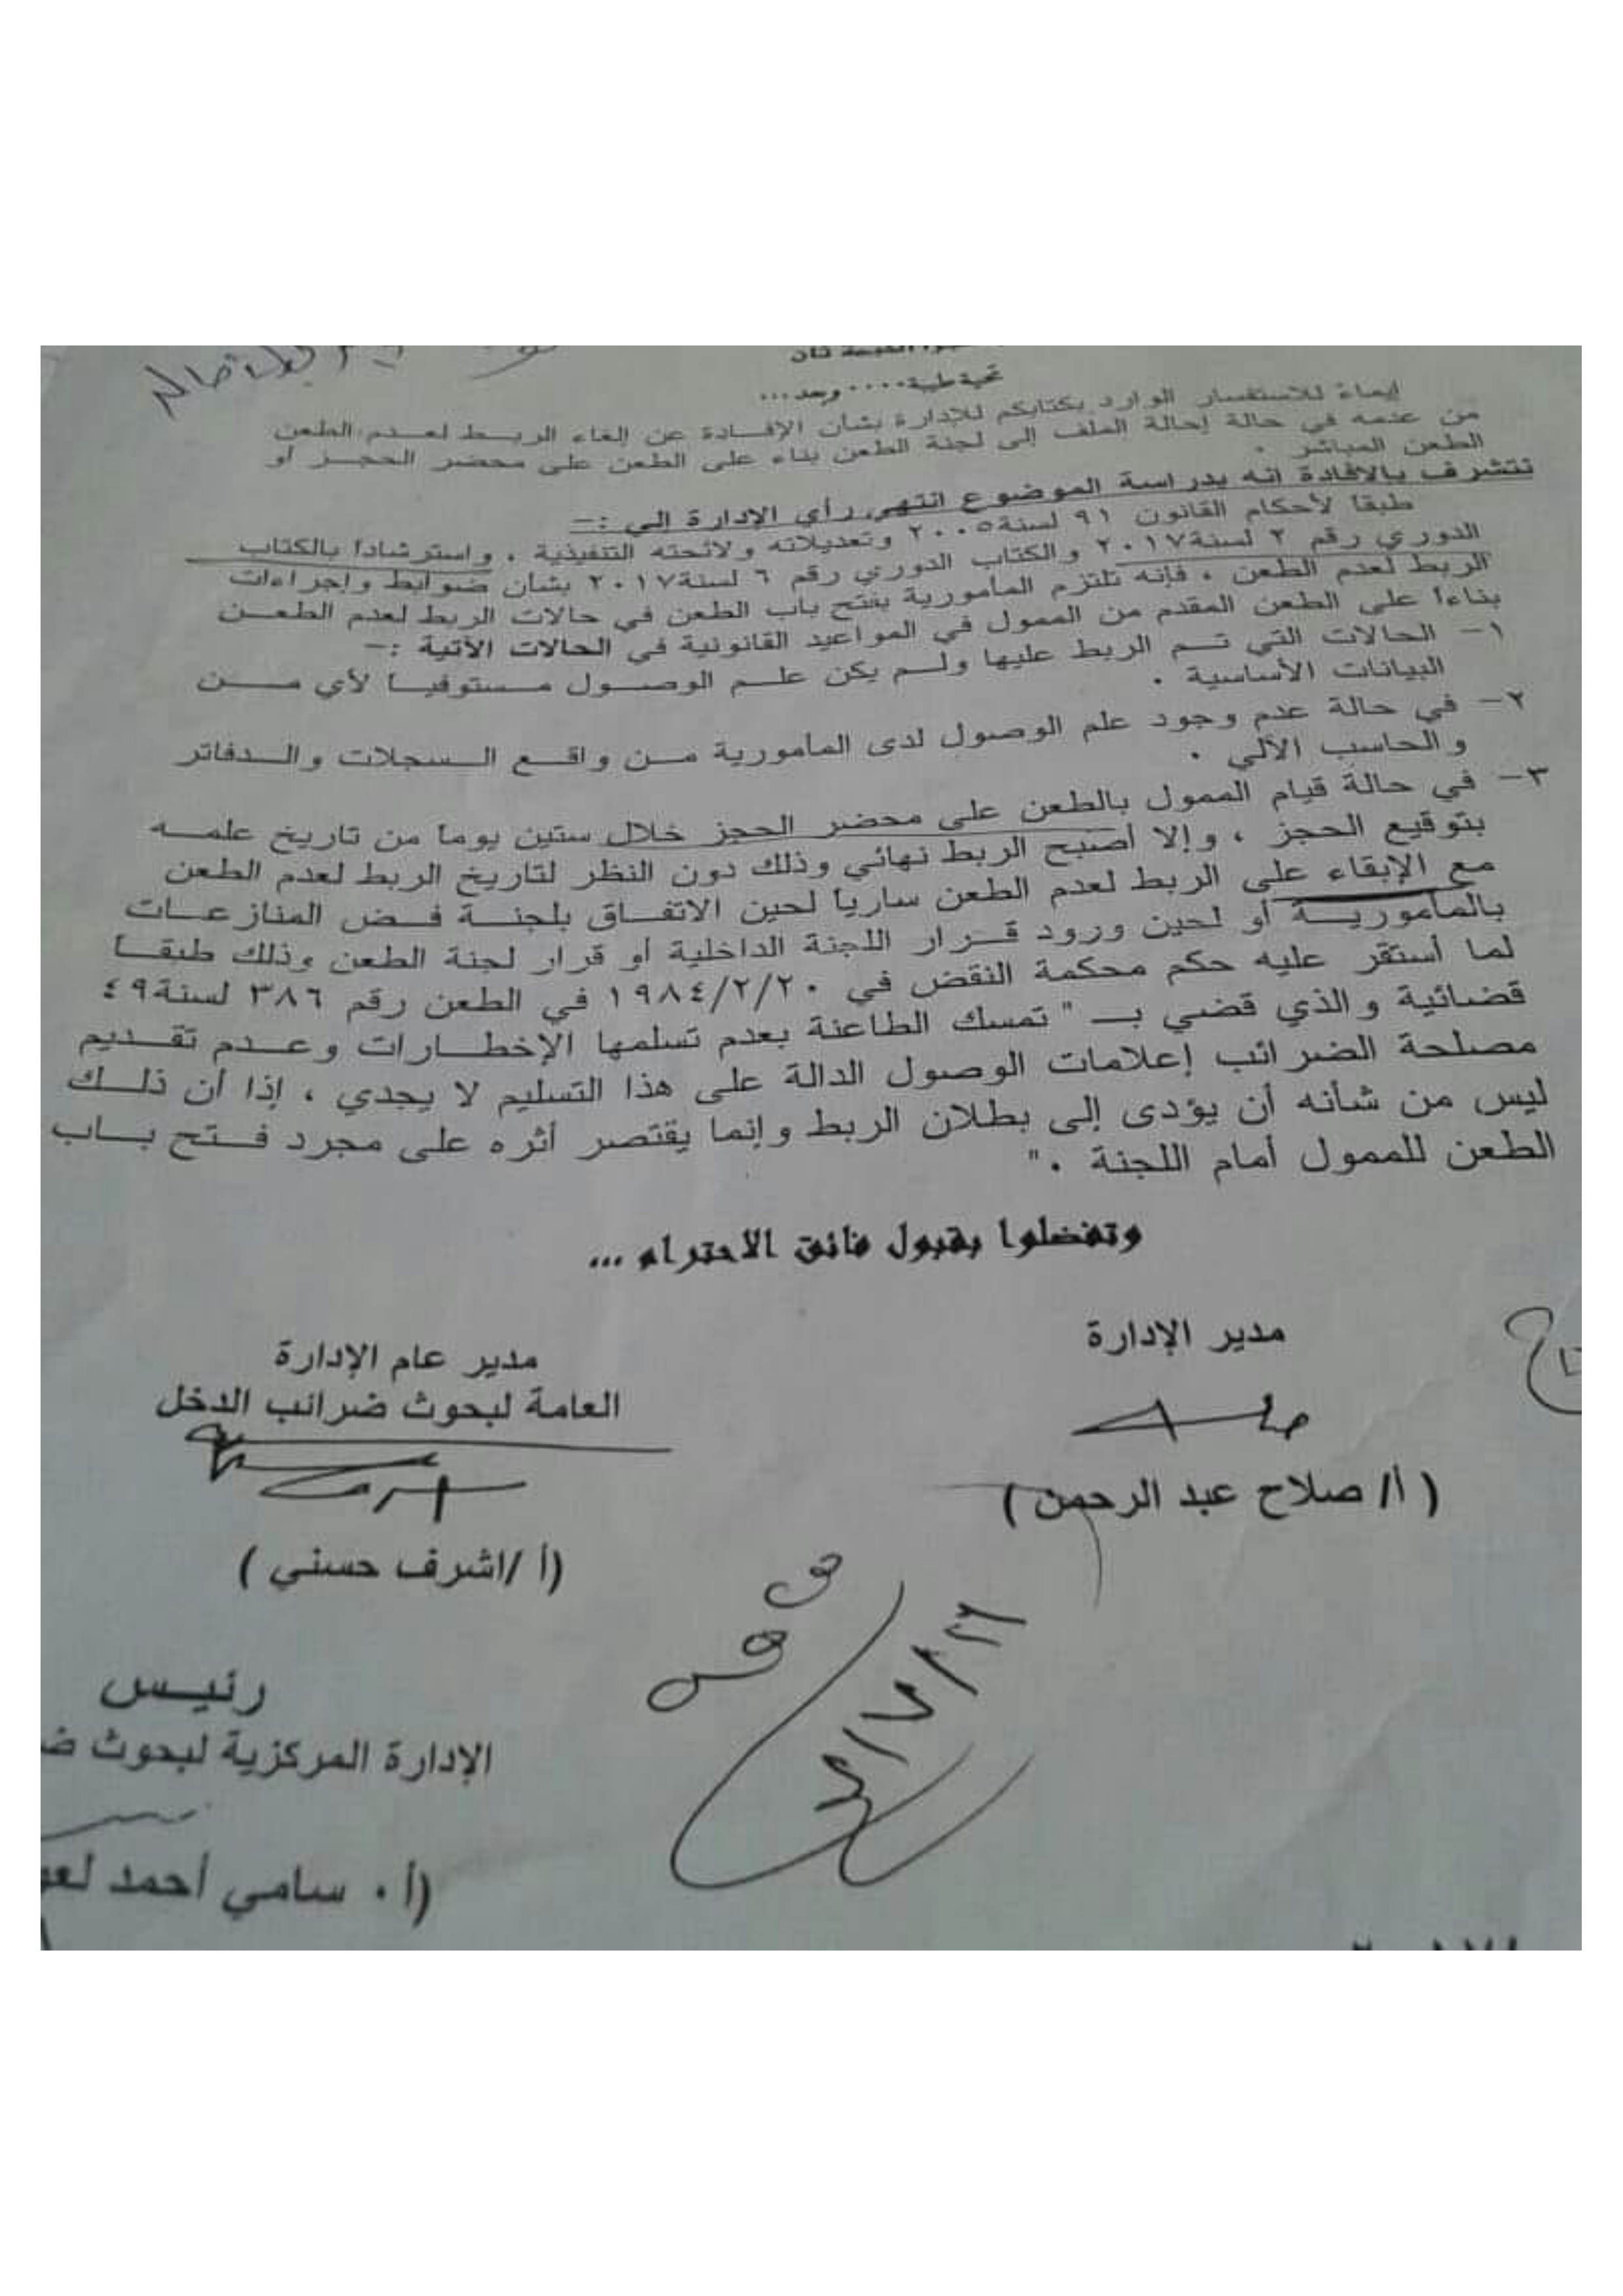 تحية طيبة .... وبعد ...
إيماءً للاستفسار الوارد بكتابكم للإدارة بشأن الإفادة عن إلغاء الربط لعدم الطعن
من عدمه في حالة إحالة الملف إلى لجنة الطعن بناء على الطعن على محضر الحجز أو
الطعن المباشر .
نتشرف بالافادة انه بدراسة الموضوع انتهى رأي الإدارة إلى :-
طبقا لأحكام القانون ٩١ لسنة ٢٠٠٥ وتعديلاته ولائحته التنفيذية ، واسترشاداً بالكتاب
الدوري رقم ٢ لسنة ٢٠١٧ والكتاب الدوري رقم ٦ لسنة ٢٠١٧ بشأن ضوابط وإجراءات
الربط لعدم الطعن ، فإنه تلتزم المأمورية بفتح باب الطعن في حالات الربط لعدم الطعن
بناءاً على الطعن المقدم من الممول في المواعيد القانونية في الحالات الآتية :-
١- الحالات التي تم الربط عليها ولم يكن علم الوصول مستوفيا لأي من
البيانات الأساسية .
٢- في حالة عدم وجود علم الوصول لدى المأمورية من واقع السجلات والدفاتر
والحاسب الآلي .
٣- في حالة قيام الممول بالطعن على محضر الحجز خلال ستين يوما من تاريخ علمه
بتوقيع الحجز ، وإلا أصبح الربط نهائي وذلك دون النظر لتاريخ الربط لعدم الطعن
مع الإبقاء على الربط لعدم الطعن سارياً لحين الاتفاق بلجنة فض المنازعات
بالمأمورية أو لحين ورود قرار اللجنة الداخلية أو قرار لجنة الطعن وذلك طبقاً
لما أستقر عليه حكم محكمة النقض في ١٩٨٤/٢/٢٠ في الطعن رقم ٣٨٦ لسنة ٤٩
قضائية والذي قضي بـ " تمسك الطاعنة بعدم تسلمها الإخطارات وعدم تقديم
مصلحة الضرائب إعلامات الوصول الدالة على هذا التسليم لا يجدي ، إذا أن ذلك
ليس من شأنه أن يؤدى إلى بطلان الربط وإنما يقتصر أثره على مجرد فتح باب
الطعن للممول أمام اللجنة ."
وتفضلوا بقبول فائق الاحترام ...
مدير الإدارة
( أ/ صلاح عبد الرحمن )
مدير عام الإدارة
العامة لبحوث ضرائب الدخل
(أ /اشرف حسني )
رئيس
الإدارة المركزية لبحوث
(أ . سامي أحمد